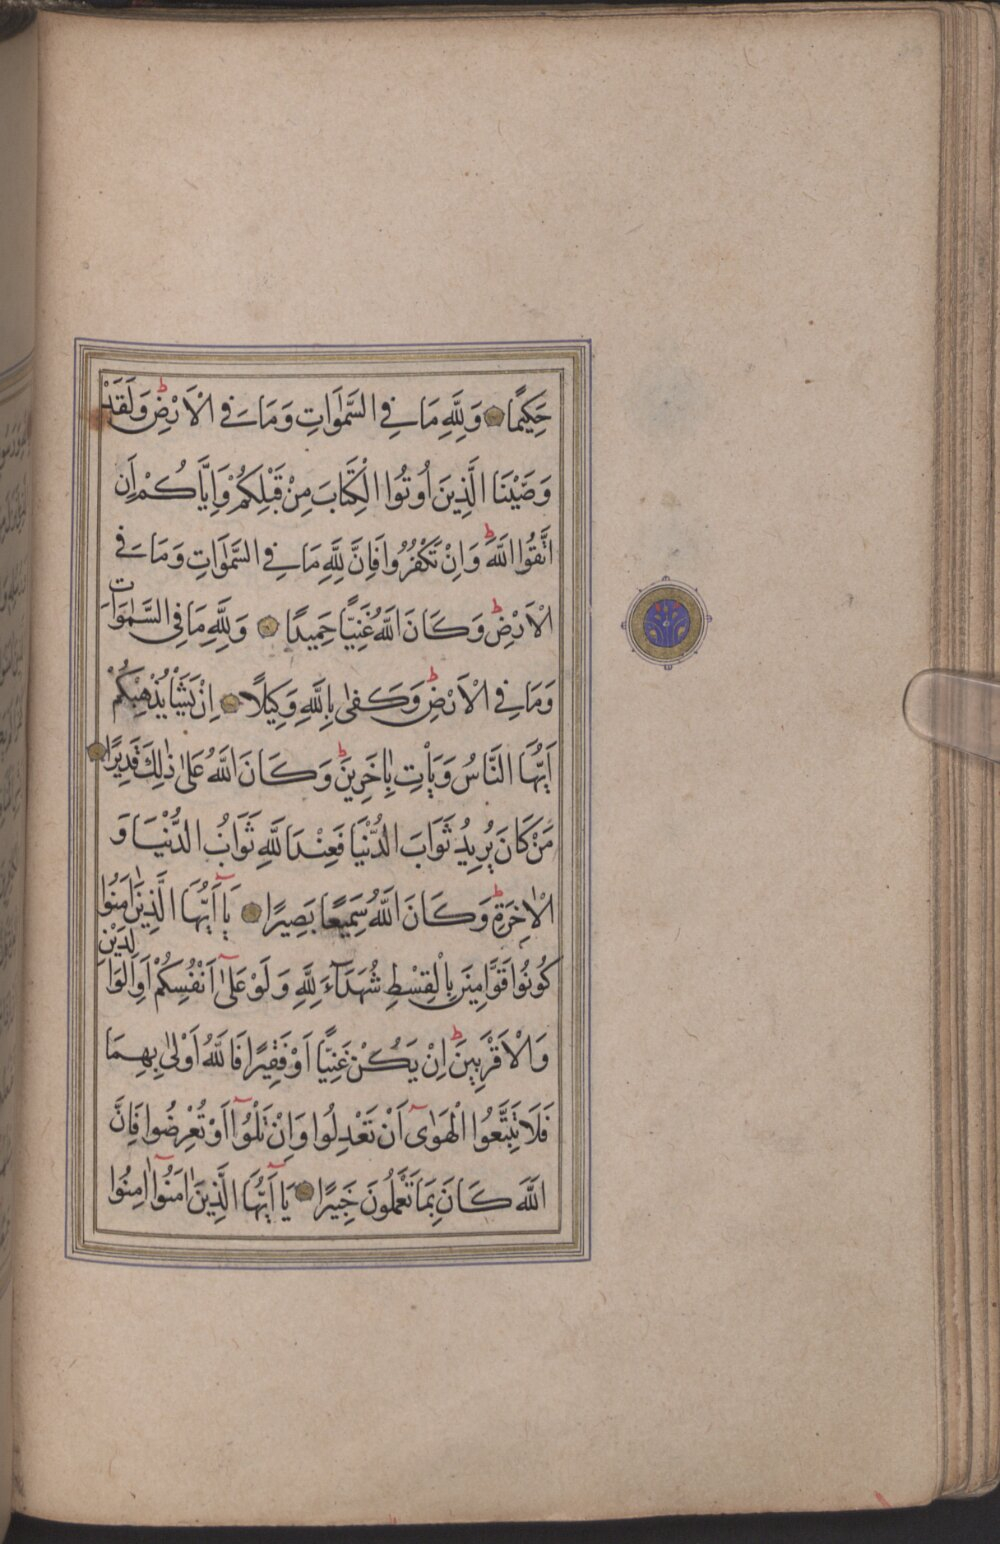 حَكِيمًا وَلِلَّهِ مَا فِي السَّمٰوَاتِ وَمَا فِي الْاَرْضِ ط وَلَقَدْ
وَصَّيْنَا الَّذِينَ اُوتُوا الْكِتَابَ مِنْ قَبْلِكُمْ وَاِيَّاكُمْ اَنِ
اتَّقُوا اللّٰهَ ط وَاِنْ تَكْفُرُوا فَاِنَّ لِلَّهِ مَا فِي السَّمٰوَاتِ وَمَا فِي
الْاَرْضِ ط وَكَانَ اللّٰهُ غَنِيًّا حَمِيدًا وَلِلَّهِ مَا فِي السَّمٰوَاتِ
وَمَا فِي الْاَرْضِ ط وَكَفٰى بِاللَّهِ وَكِيلًا اِنْ يَشَأْ يُذْهِبْكُمْ
اَيُّهَا النَّاسُ وَيَأْتِ بِاٰخَرِينَ ط وَكَانَ اللّٰهُ عَلٰى ذٰلِكَ قَدِيرًا
مَنْ كَانَ يُرِيدُ ثَوَابَ الدُّنْيَا فَعِنْدَ اللّٰهِ ثَوَابُ الدُّنْيَا وَ
الْاٰخِرَةِ ط وَكَانَ اللّٰهُ سَمِيعًا بَصِيرًا يَآ اَيُّهَا الَّذِينَ اٰمَنُوا
كُونُوا قَوَّامِينَ بِالْقِسْطِ شُهَدَآءَ لِلَّهِ وَلَوْ عَلٰٓى اَنْفُسِكُمْ اَوِ الْوَالِدَيْنِ
وَالْاَقْرَبِينَ ط اِنْ يَكُنْ غَنِيًّا اَوْ فَقِيرًا فَاللّٰهُ اَوْلٰى بِهِمَا
فَلَا تَتَّبِعُوا الْهَوٰٓى اَنْ تَعْدِلُوا وَاِنْ تَلْوُٓا اَوْ تُعْرِضُوا فَاِنَّ
اللّٰهَ كَانَ بِمَا تَعْمَلُونَ خَبِيرًا يَآ اَيُّهَا الَّذِينَ اٰمَنُوٓا اٰمِنُوا